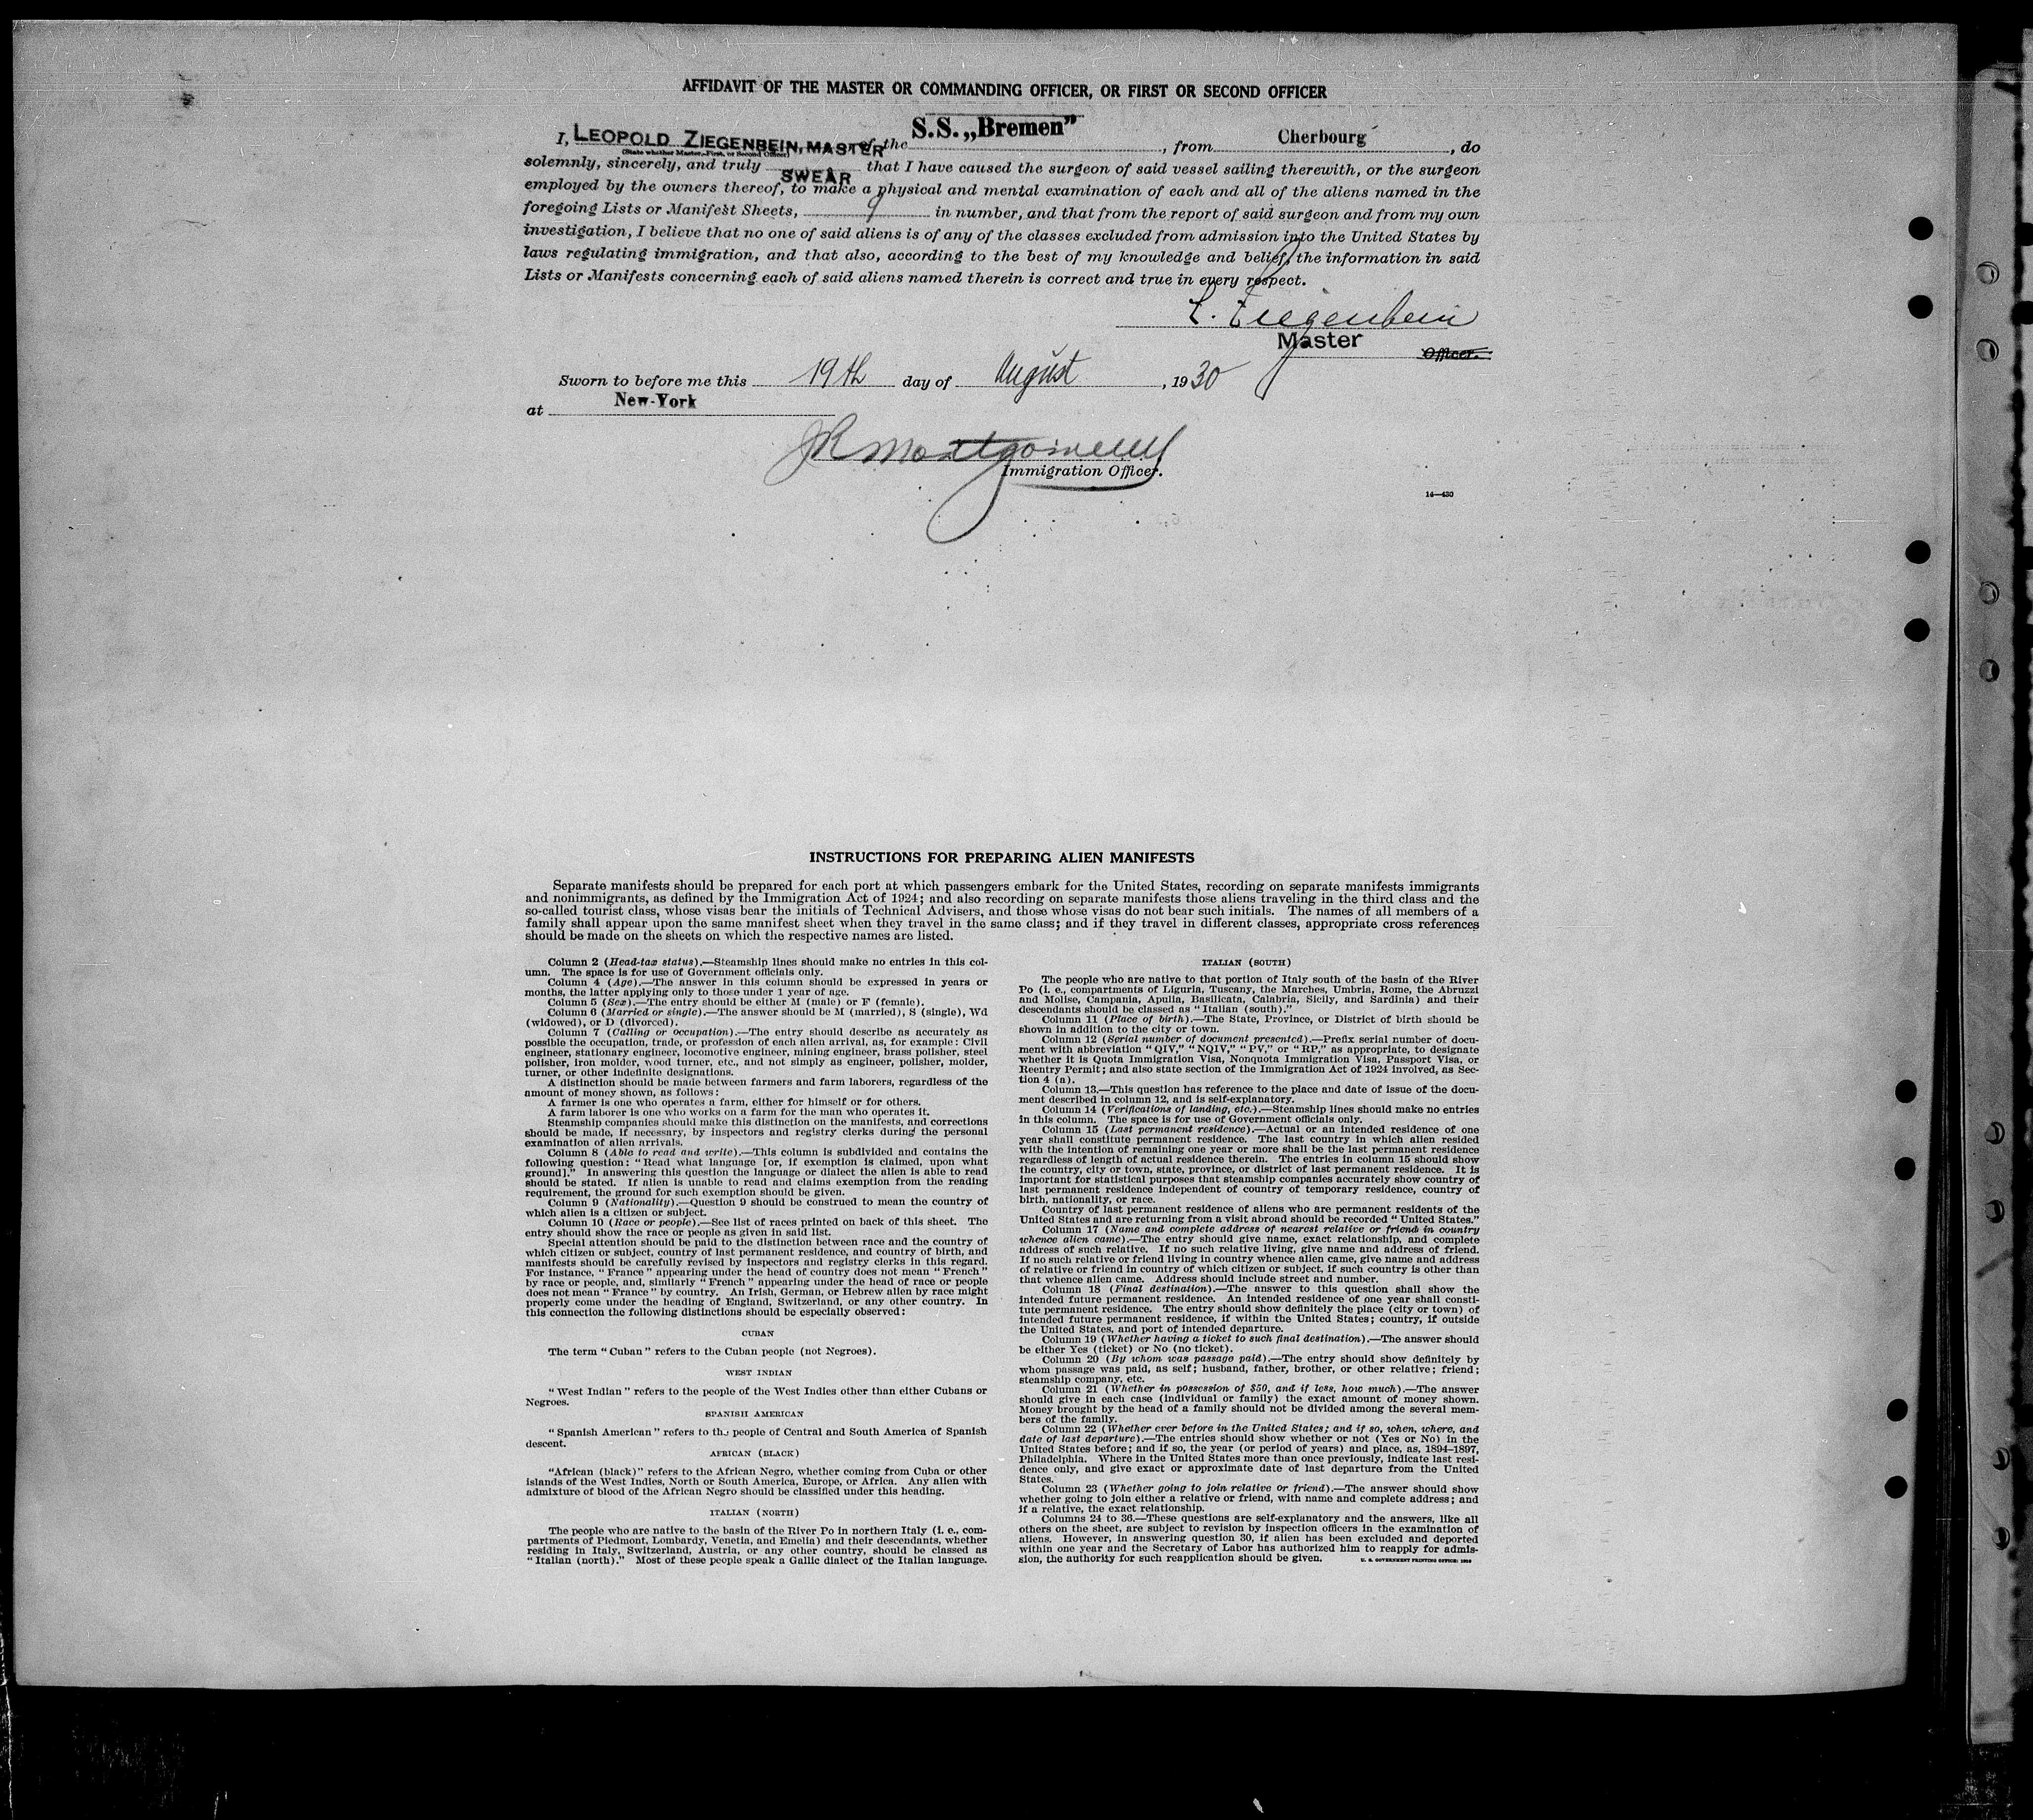 AFFIDAVIT OF THE MASTER OR COMMANDING OFFICER, OR FIRST OR SECOND OFFICER
I, LEOPOLD ZIEGENBEIN, MASTER of the S.S. „Bremen”, from Cherbourg, do
(State whether Master, First, or Second Officer)
solemnly, sincerely, and truly SWEAR that I have caused the surgeon of said vessel sailing therewith, or the surgeon
employed by the owners thereof, to make a physical and mental examination of each and all of the aliens named in the
foregoing Lists or Manifest Sheets, 9 in number, and that from the report of said surgeon and from my own
investigation, I believe that no one of said aliens is of any of the classes excluded from admission into the United States by
laws regulating immigration, and that also, according to the best of my knowledge and belief, the information in said
Lists or Manifests concerning each of said aliens named therein is correct and true in every respect.
L. Ziegenbein
Master Officer.
Sworn to before me this 19th day of August, 1930
at New-York
JR Montgomery
Immigration Officer.
14—430
INSTRUCTIONS FOR PREPARING ALIEN MANIFESTS
Separate manifests should be prepared for each port at which passengers embark for the United States, recording on separate manifests immigrants
and nonimmigrants, as defined by the Immigration Act of 1924; and also recording on separate manifests those aliens traveling in the third class and the
so-called tourist class, whose visas bear the initials of Technical Advisers, and those whose visas do not bear such initials. The names of all members of a
family shall appear upon the same manifest sheet when they travel in the same class; and if they travel in different classes, appropriate cross references
should be made on the sheets on which the respective names are listed.
Column 2 (Head-tax status).—Steamship lines should make no entries in this col-
umn. The space is for use of Government officials only.
Column 4 (Age).—The answer in this column should be expressed in years or
months, the latter applying only to those under 1 year of age.
Column 5 (Sex).—The entry should be either M (male) or F (female).
Column 6 (Married or single).—The answer should be M (married), S (single), Wd
(widowed), or D (divorced).
Column 7 (Calling or occupation).—The entry should describe as accurately as
possible the occupation, trade, or profession of each alien arrival, as, for example: Civil
engineer, stationary engineer, locomotive engineer, mining engineer, brass polisher, steel
polisher, iron molder, wood turner, etc., and not simply as engineer, polisher, molder,
turner, or other indefinite designations.
A distinction should be made between farmers and farm laborers, regardless of the
amount of money shown, as follows:
A farmer is one who operates a farm, either for himself or for others.
A farm laborer is one who works on a farm for the man who operates it.
Steamship companies should make this distinction on the manifests, and corrections
should be made, if necessary, by inspectors and registry clerks during the personal
examination of alien arrivals.
Column 8 (Able to read and write).—This column is subdivided and contains the
following question: “Read what language [or, if exemption is claimed, upon what
ground].” In answering this question the language or dialect the alien is able to read
should be stated. If alien is unable to read and claims exemption from the reading
requirement, the ground for such exemption should be given.
Column 9 (Nationality).—Question 9 should be construed to mean the country of
which alien is a citizen or subject.
Column 10 (Race or people).—See list of races printed on back of this sheet. The
entry should show the race or people as given in said list.
Special attention should be paid to the distinction between race and the country of
which citizen or subject, country of last permanent residence, and country of birth, and
manifests should be carefully revised by inspectors and registry clerks in this regard.
For instance, “France” appearing under the head of country does not mean “French”
by race or people, and, similarly “French” appearing under the head of race or people
does not mean “France” by country. An Irish, German, or Hebrew alien by race might
properly come under the heading of England, Switzerland, or any other country. In
this connection the following distinctions should be especially observed:
CUBAN
The term “Cuban” refers to the Cuban people (not Negroes).
WEST INDIAN
“West Indian” refers to the people of the West Indies other than either Cubans or
Negroes.
SPANISH AMERICAN
“Spanish American” refers to the people of Central and South America of Spanish
descent.
AFRICAN (BLACK)
“African (black)” refers to the African Negro, whether coming from Cuba or other
islands of the West Indies, North or South America, Europe, or Africa. Any alien with
admixture of blood of the African Negro should be classified under this heading.
ITALIAN (NORTH)
The people who are native to the basin of the River Po in northern Italy (i. e., com-
partments of Piedmont, Lombardy, Venetia, and Emelia) and their descendants, whether
residing in Italy, Switzerland, Austria, or any other country, should be classed as
“Italian (north).” Most of these people speak a Gallic dialect of the Italian language.
ITALIAN (SOUTH)
The people who are native to that portion of Italy south of the basin of the River
Po (i. e., compartments of Liguria, Tuscany, the Marches, Umbria, Rome, the Abruzzi
and Molise, Campania, Apulia, Basilicata, Calabria, Sicily, and Sardinia) and their
descendants should be classed as “Italian (south).”
Column 11 (Place of birth).—The State, Province, or District of birth should be
shown in addition to the city or town.
Column 12 (Serial number of document presented).—Prefix serial number of docu-
ment with abbreviation “QIV,” “NQIV,” “PV,” or “RP,” as appropriate, to designate
whether it is Quota Immigration Visa, Nonquota Immigration Visa, Passport Visa, or
Reentry Permit; and also state section of the Immigration Act of 1924 involved, as Sec-
tion 4 (a).
Column 13.—This question has reference to the place and date of issue of the docu-
ment described in column 12, and is self-explanatory.
Column 14 (Verifications of landing, etc.).—Steamship lines should make no entries
in this column. The space is for use of Government officials only.
Column 15 (Last permanent residence).—Actual or an intended residence of one
year shall constitute permanent residence. The last country in which alien resided
with the intention of remaining one year or more shall be the last permanent residence
regardless of length of actual residence therein. The entries in column 15 should show
the country, city or town, state, province, or district of last permanent residence. It is
important for statistical purposes that steamship companies accurately show country of
last permanent residence independent of country of temporary residence, country of
birth, nationality, or race.
Country of last permanent residence of aliens who are permanent residents of the
United States and are returning from a visit abroad should be recorded “United States.”
Column 17 (Name and complete address of nearest relative or friend in country
whence alien came).—The entry should give name, exact relationship, and complete
address of such relative. If no such relative living, give name and address of friend.
If no such relative or friend living in country whence alien came, give name and address
of relative or friend in country of which citizen or subject, if such country is other than
that whence alien came. Address should include street and number.
Column 18 (Final destination).—The answer to this question shall show the
intended future permanent residence. An intended residence of one year shall consti-
tute permanent residence. The entry should show definitely the place (city or town) of
intended future permanent residence, if within the United States; country, if outside
the United States, and port of intended departure.
Column 19 (Whether having a ticket to such final destination).—The answer should
be either Yes (ticket) or No (no ticket).
Column 20 (By whom was passage paid).—The entry should show definitely by
whom passage was paid, as self; husband, father, brother, or other relative; friend;
steamship company, etc.
Column 21 (Whether in possession of $50, and if less, how much).—The answer
should give in each case (individual or family) the exact amount of money shown.
Money brought by the head of a family should not be divided among the several mem-
bers of the family.
Column 22 (Whether ever before in the United States; and if so, when, where, and
date of last departure).—The entries should show whether or not (Yes or No) in the
United States before; and if so, the year (or period of years) and place, as, 1894–1897,
Philadelphia. Where in the United States more than once previously, indicate last resi-
dence only, and give exact or approximate date of last departure from the United
States.
Column 23 (Whether going to join relative or friend).—The answer should show
whether going to join either a relative or friend, with name and complete address; and
if a relative, the exact relationship.
Columns 24 to 36.—These questions are self-explanatory and the answers, like all
others on the sheet, are subject to revision by inspection officers in the examination of
aliens. However, in answering question 30, if alien has been excluded and deported
within one year and the Secretary of Labor has authorized him to reapply for admis-
sion, the authority for such reapplication should be given.
U. S. GOVERNMENT PRINTING OFFICE: